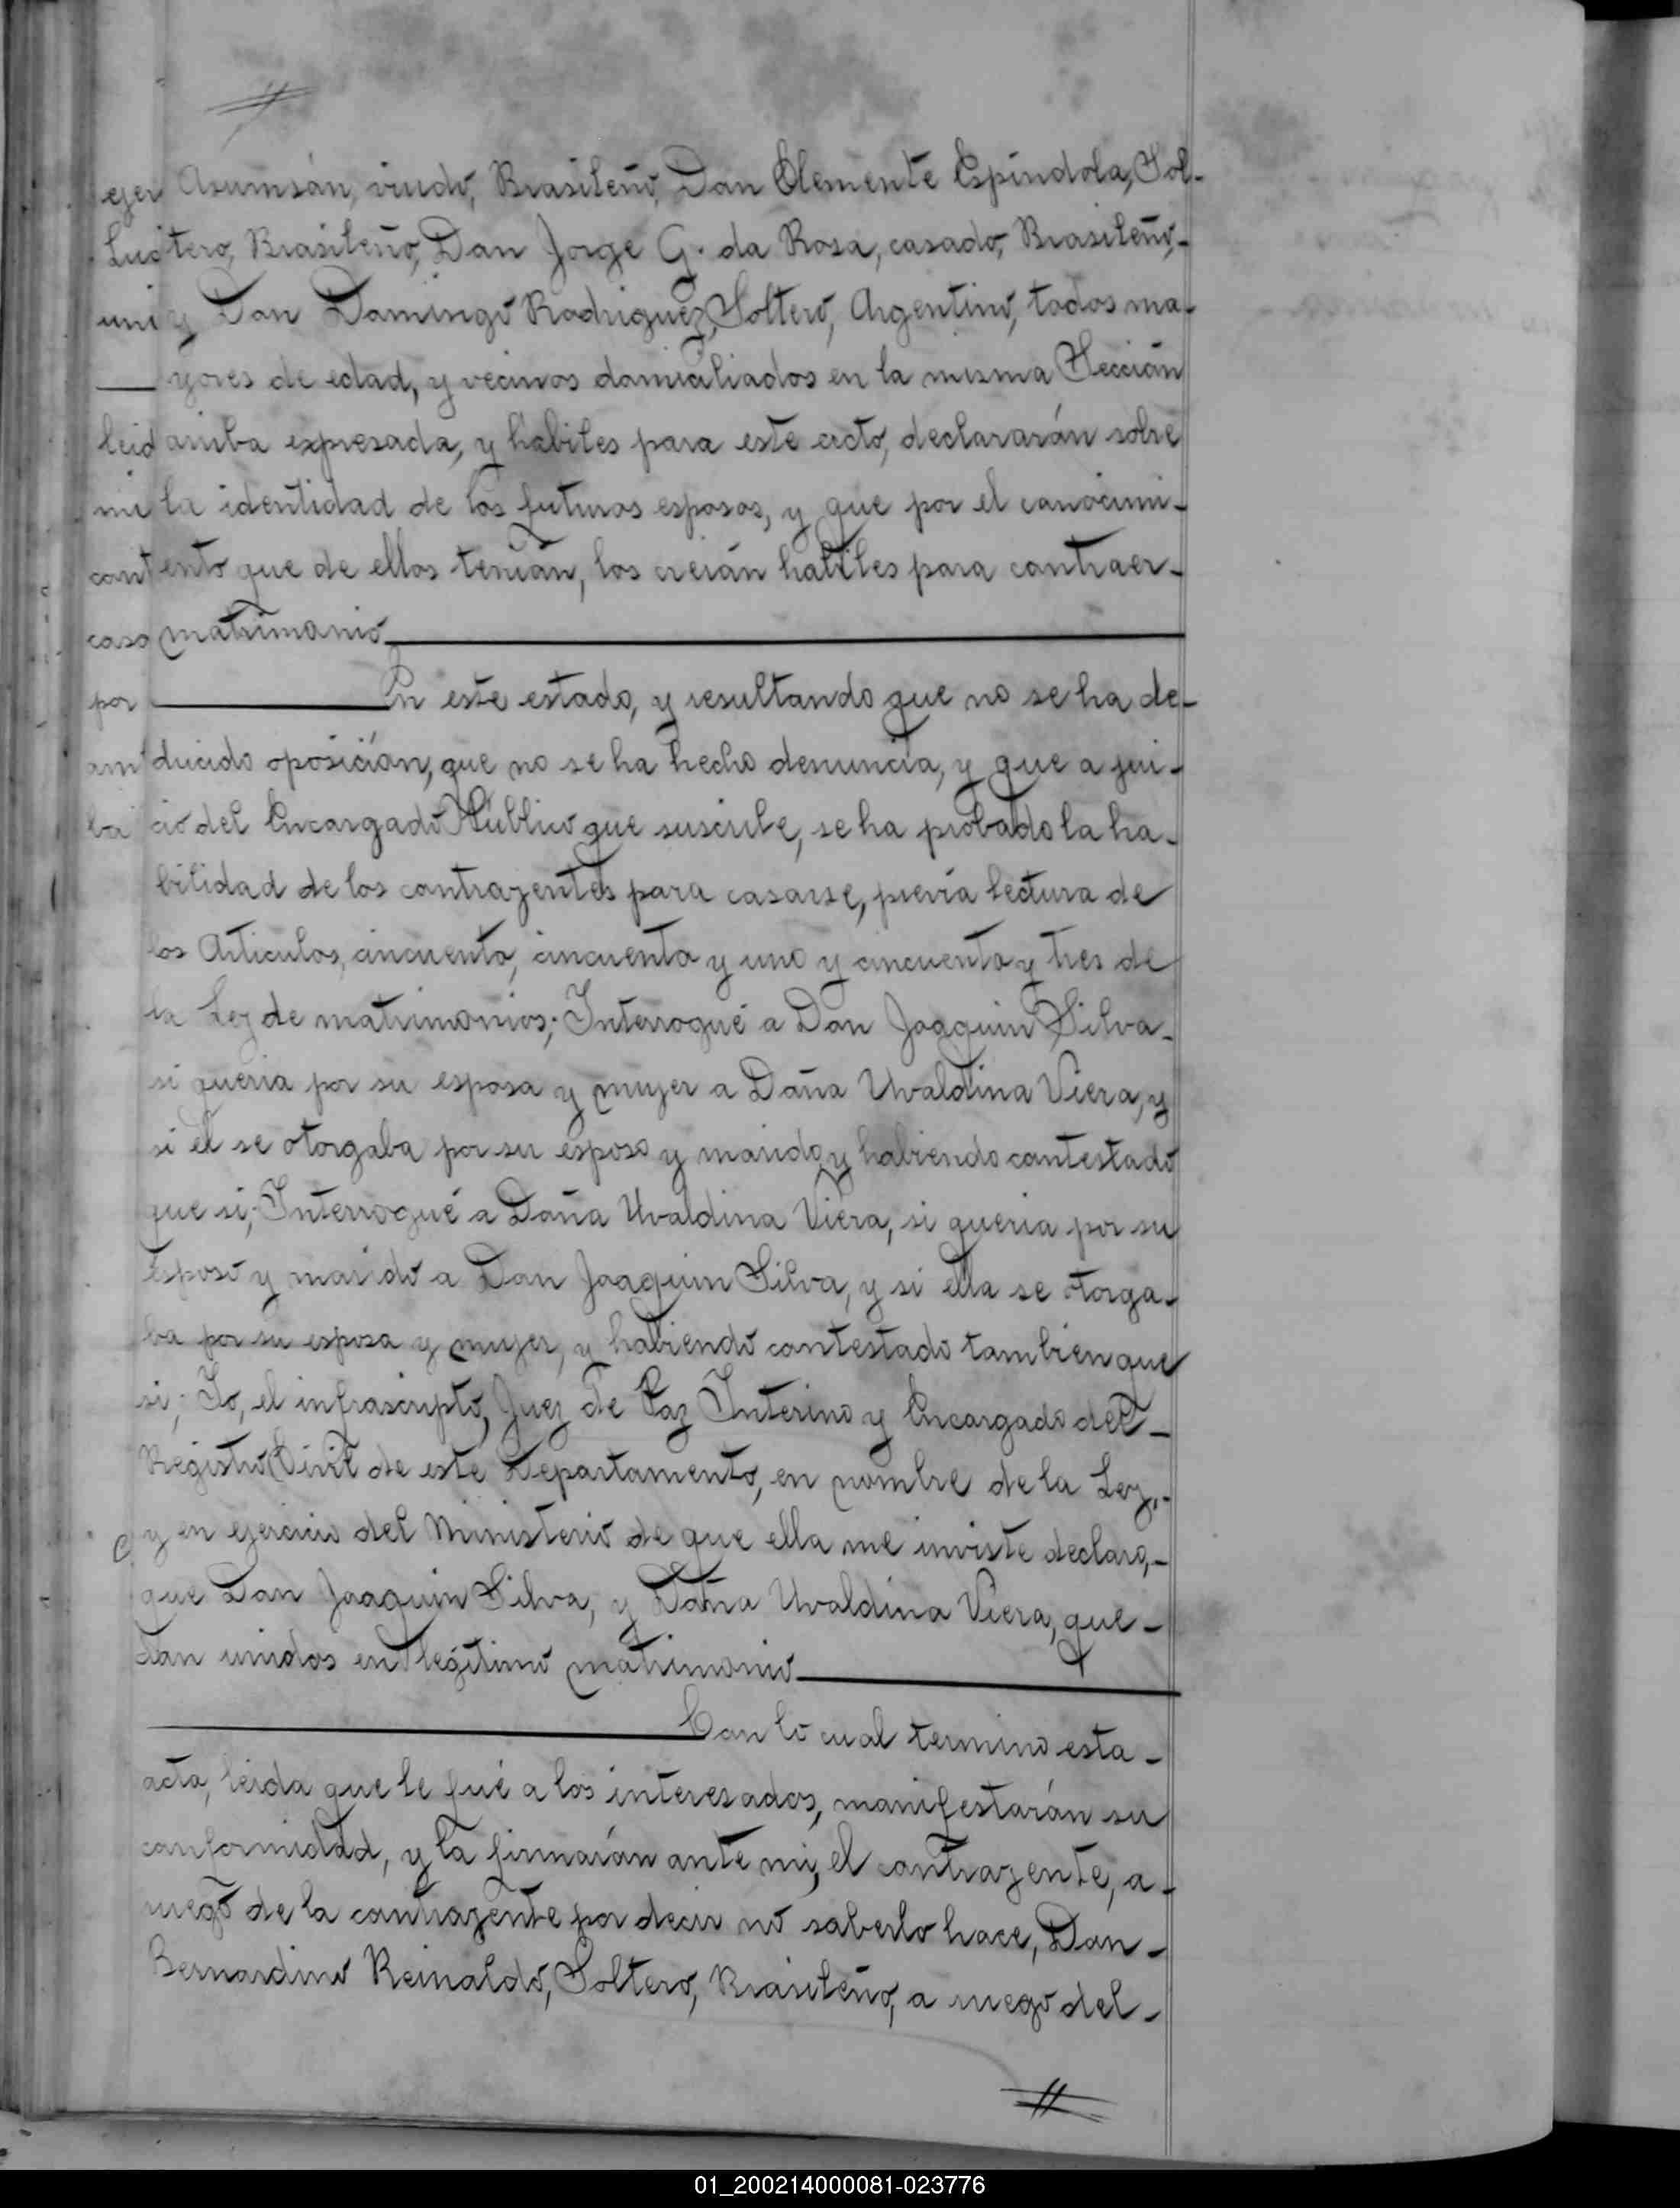 Asumsán, viudo, Brasileño, Dan Clemente Espíndola, Sol-
tero, Brasileño, Dan Jorge G. da Rosa, casado, Brasileño,-
y Dan Domingo Rodriguez, Soltero, Argentino, todos ma-
yores de edad, y vecinos domiciliados en la misma Sección
arriba expresada, y habiles para este acto, declararán sobre
la identidad de los futuros esposos, y que por el conocimi-
ento que de ellos tenían, los creían habiles para contraer-
matrimonio
En este estado, y resultando que no se ha de-
ducido oposición, que no se ha hecho denuncia, y que a jui-
cio del Encargado Público que suscribe, se ha probado la ha-
bilidad de los contrayentes para casarse, previa lectura de
los Articulos, cincuenta, cincuenta y uno y cincuenta y tres de
la Ley de matrimonios; Interrogué a Don Joaquin Silva-
si queria por su esposa y mujer a Doña Uvaldina Viera, y
si él se otorgaba por su esposo y marido, y habiendo contestado
que si; Interrogué a Doña Uvaldina Viera, si queria por su
esposo y marido a Dan Joaquin Silva, y si ella se otorga-
ba por su esposa y mujer, y habiendo contestado tambien que
si; Yo, el infrascripto, Juez de Paz Interino y Encargado del-
Registro Civil de este Departamento, en nombre de la Ley,-
y en ejercicio del Ministerio de que ella me inviste declaro,-
que Dan Joaquin Silva, y Doña Uvaldina Viera, que-
dan unidos en legítimo matrimonio
Con lo cual termino esta-
acta, leida que le fué a los interesados, manifestarán su
conformidad, y la firmarán ante mi, el contrayente, a-
ruego de la contrayente por decir no saberlo hace, Dan-
Bernardino Reinaldo, Soltero, Brasileño, a ruego del-
01_200214000081-023776